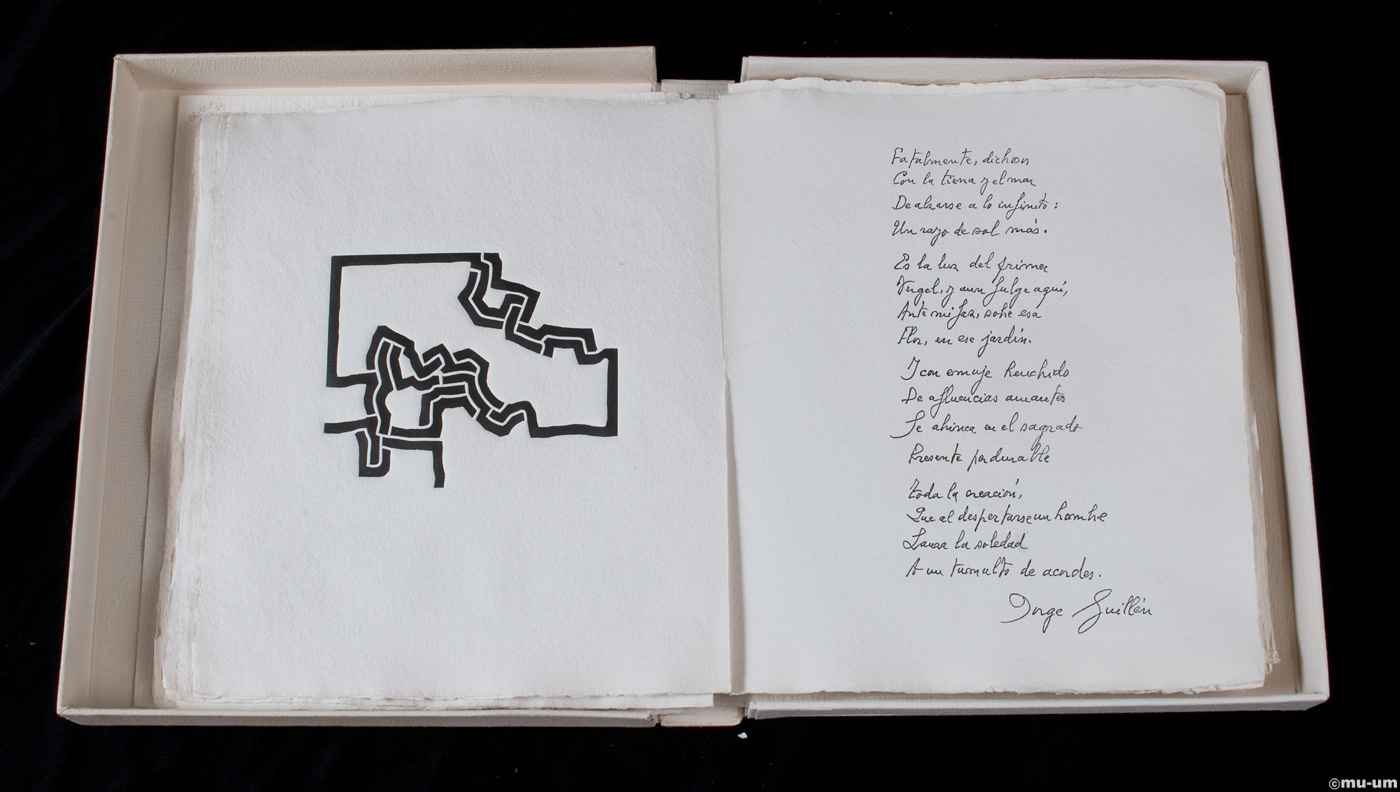 Fatalmente, dichoso
Con la tierra y el mar
De alzarse a lo infinito:
Un rayo de sol más.
Es la luz del primer
Vergel, y aun fulge aquí,
Ante mi faz, sobre esa
Flor, en ese jardín.
Y con empuje henchido
De afluencias amantes
Se ahinca en el sagrado
Presente perdurable
Toda la creación,
Que al despertarse un hombre
Lanza la soledad
A un tumulto de acordes.
Jorge Guillén
©mu-um